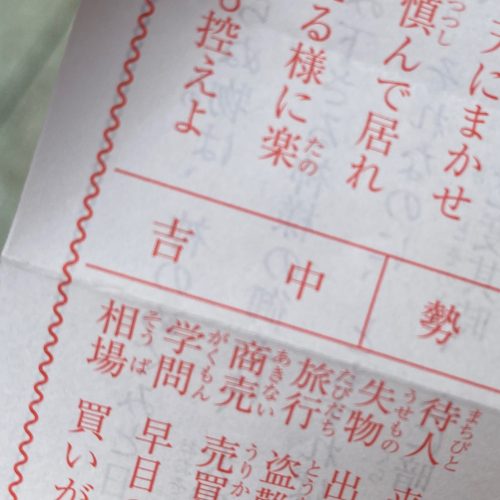 にまかせ
慎んで居れ
る様に楽
控えよ
勢
中吉
待人
失物
出
旅行
盗
商売
売買
学問
早目
相場
買いが